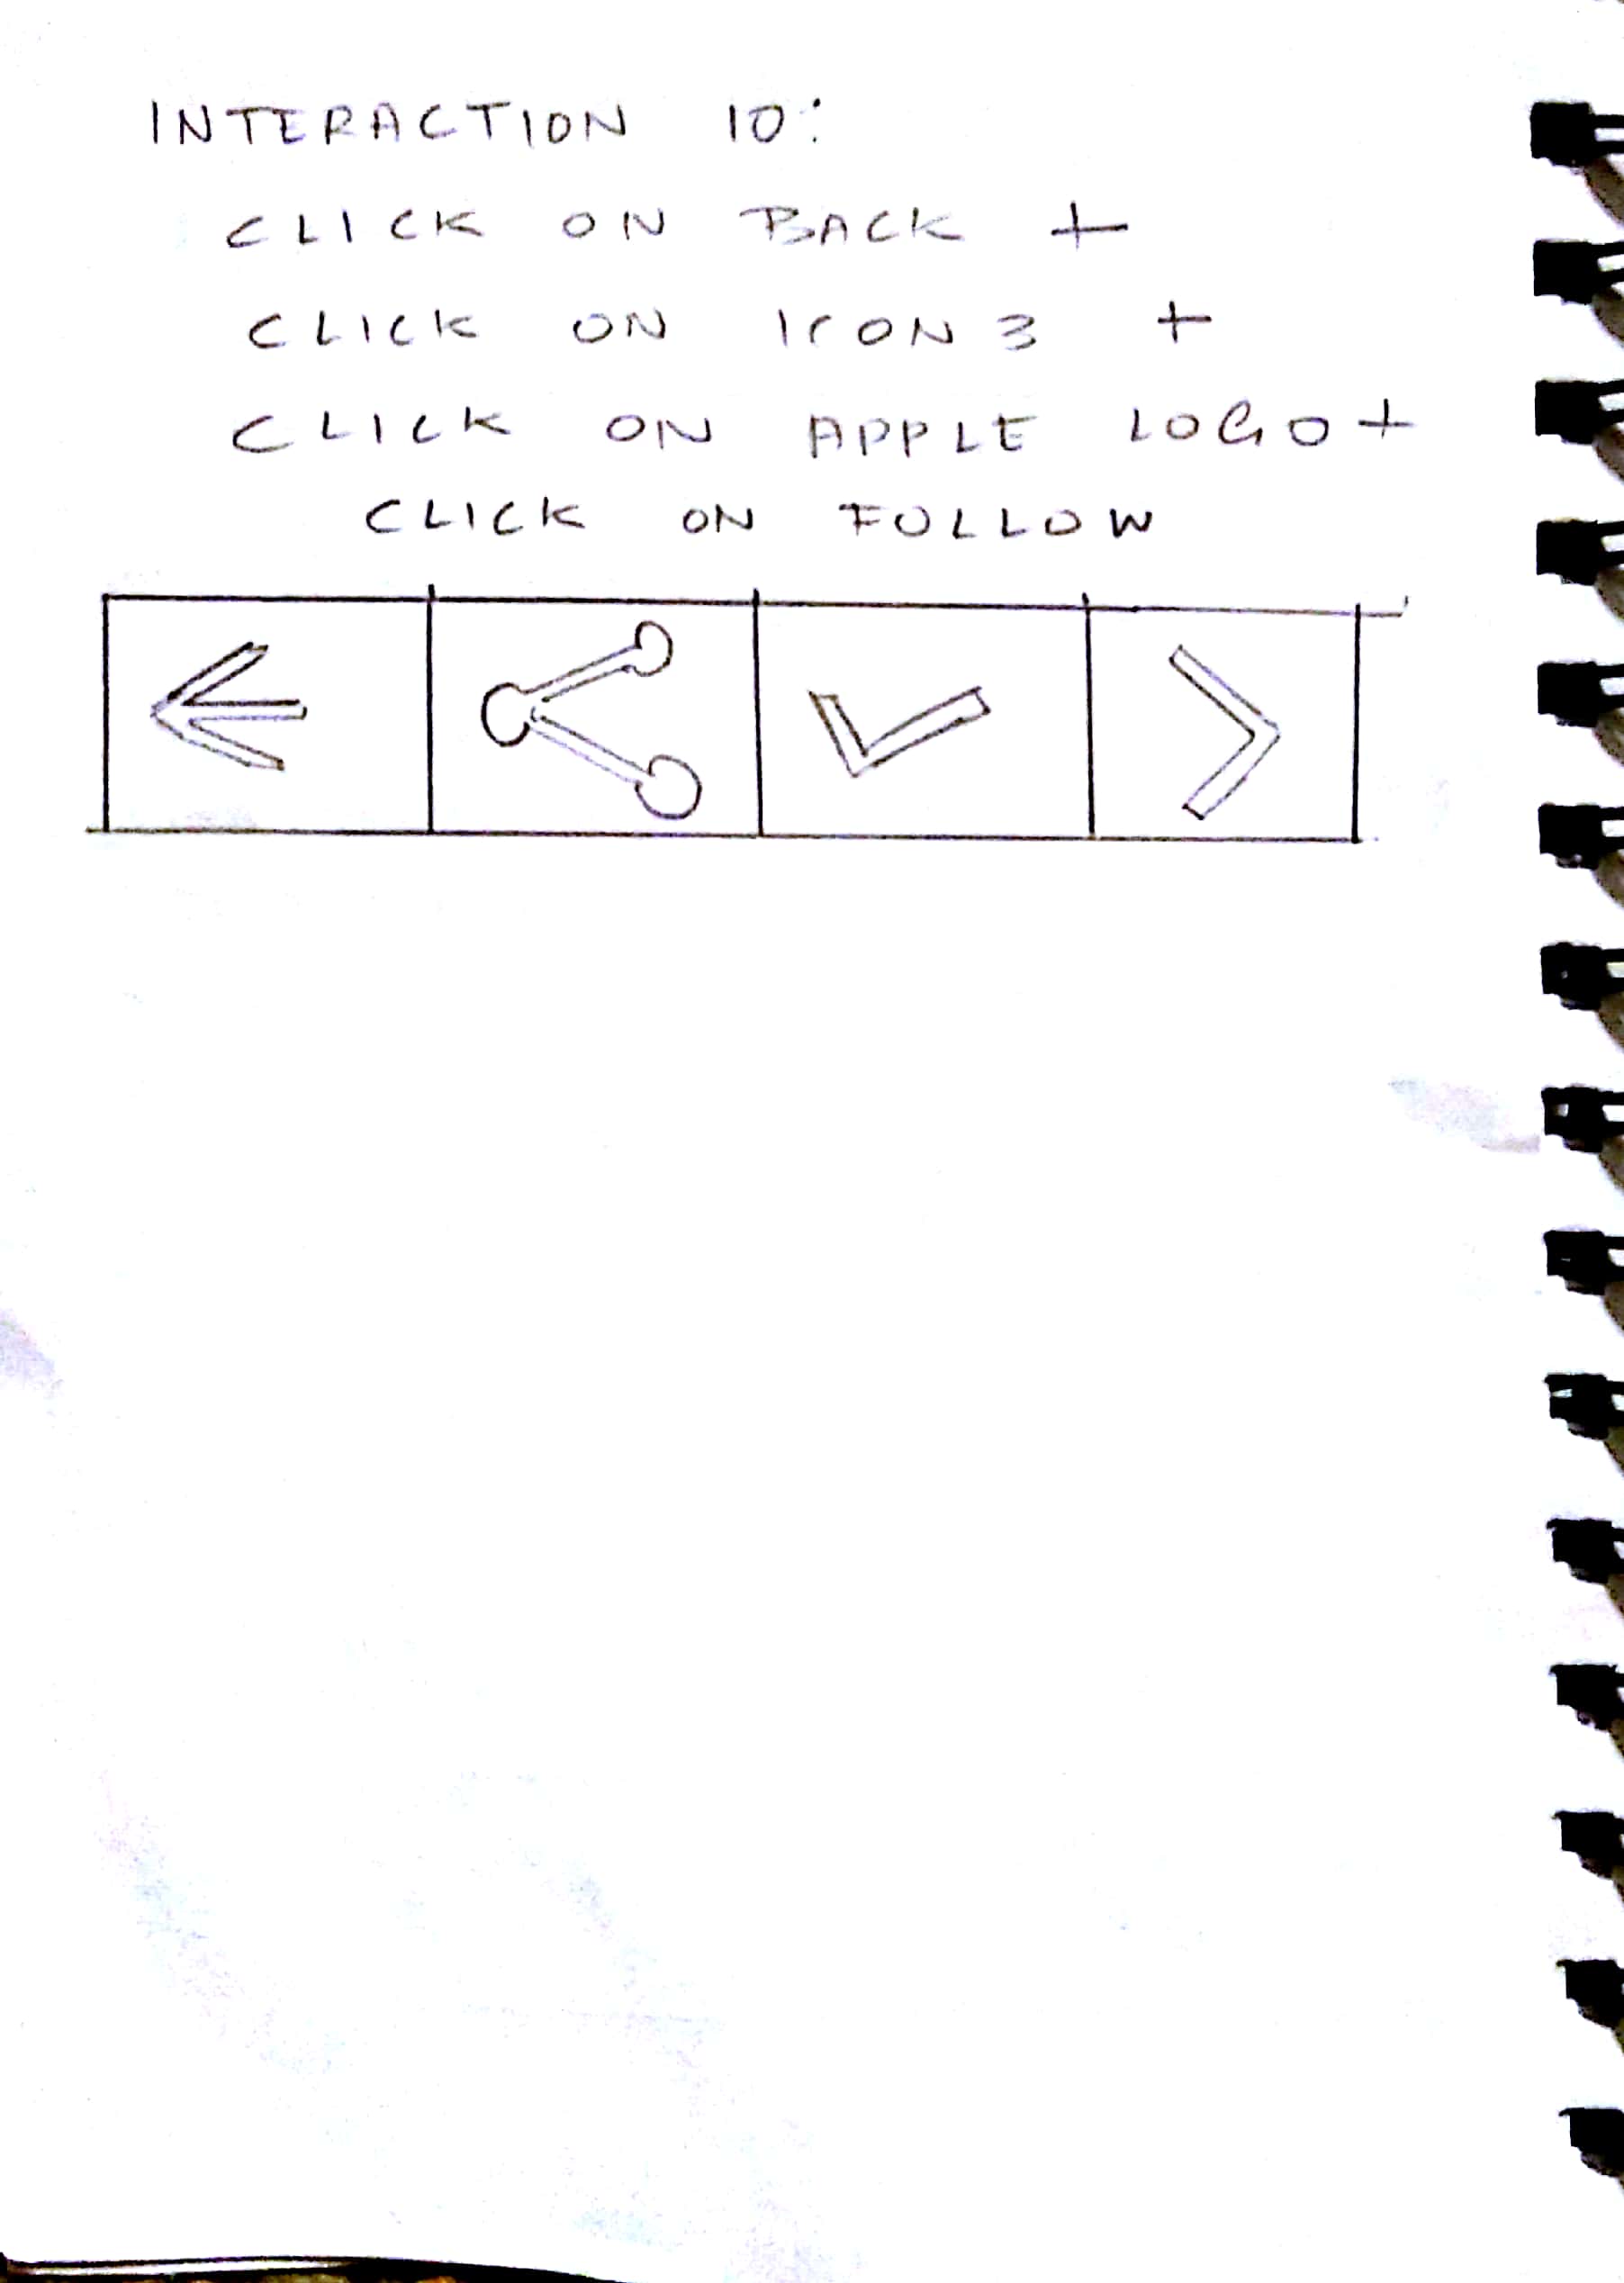 INTERACTION 10:
CLICK ON BACK +
CLICK ON ICON 3 +
CLICK ON APPLE LOGO +
CLICK ON FOLLOW